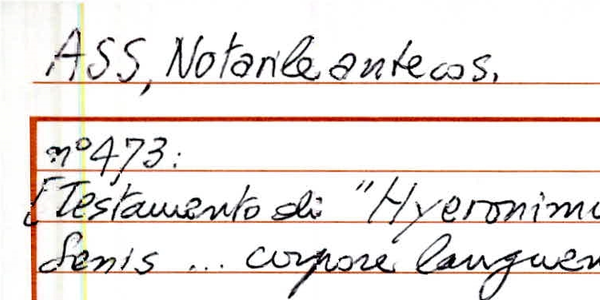 ASS, Notarile antecos.
n° 473:
[Testamento di "Hyeronimu
Senis ... corpore languen